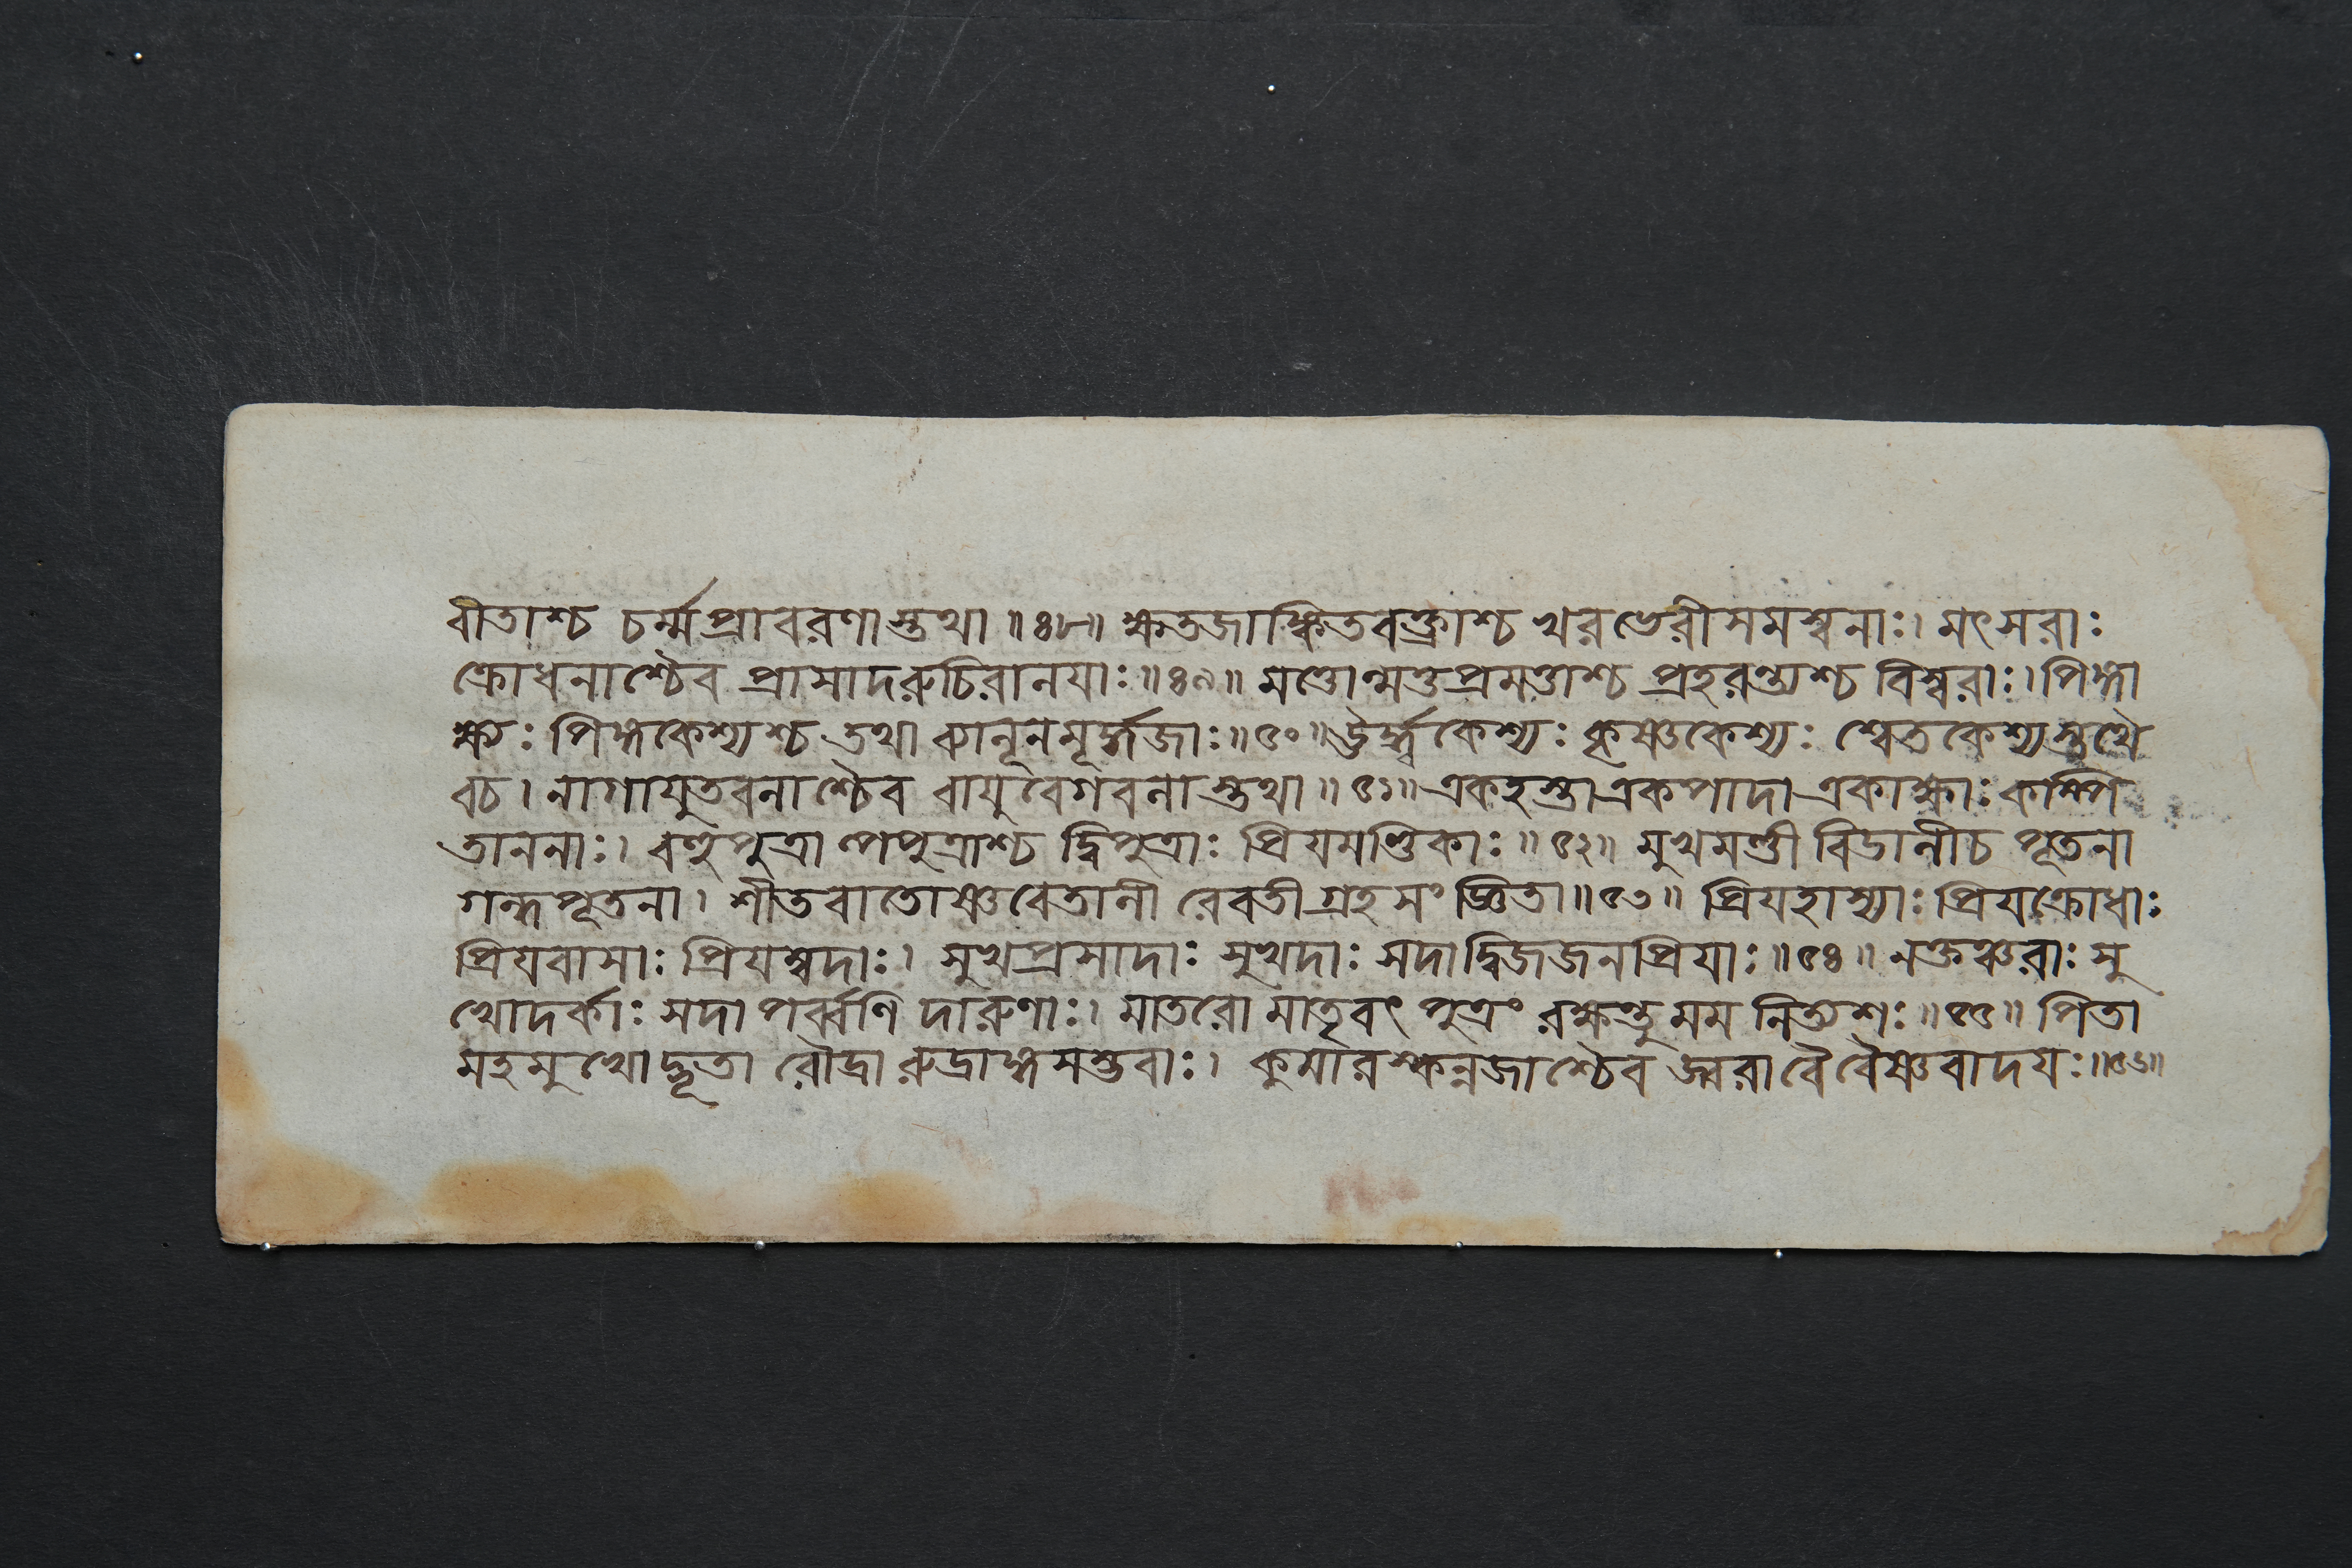 বীতাশ্চ চর্ম্মপ্রাবরণাস্তথা ॥৪৮॥ ক্ষতজাঙ্কিতবক্ত্রাশ্চ খরভেরীসমস্বনাঃ। মৎসরাঃ
ক্রোধনাশ্চৈব প্রাসাদরুচিরালয়াঃ॥৪৯॥ মত্তোন্মত্তপ্রমত্তাশ্চ প্রহরন্ত্যশ্চ বিস্বরাঃ। পিঙ্গা
ক্ষ্যঃ পিঙ্গকেশ্যশ্চ তথা বালূনমূর্দ্ধজাঃ॥৫০॥ ঊর্দ্ধ্বকেশ্যঃ কৃষ্ণকেশ্যঃ শ্বেতকেশ্যস্তথৈ
বচ। নাগাযুতবলাশ্চৈব বাযুবেগবলাস্তথা॥৫১॥ একহস্তা একপাদা একাক্ষাঃ কম্পি
তাননাঃ। বহুপুত্রাল্পপুত্রাশ্চ দ্বিপুত্রাঃ প্রিযমণ্ডিকাঃ॥৫২॥ মুখমণ্ডী বিডালীচ পূতনা
গন্ধপূতনা। শীতবাতোষ্ণবেতালী রেবতীগ্রহসংজ্ঞিতা॥৫৩॥ প্রিযহাস্যাঃ প্রিযক্রোধাঃ
প্রিযবাসাঃ প্রিযম্বদাঃ। সুখপ্রসাদাঃ সুখদাঃ সদাদ্বিজজনপ্রিযাঃ॥৫৪॥ নক্তঞ্চরাঃ সু
খোদর্কাঃ সদা পর্ব্বণি দারুণাঃ। মাতরো মাতৃবৎ পুত্রং রক্ষন্তু মম নিত্যশঃ॥৫৫॥ পিতা
মহমুখোদ্ভূতা রৌদ্রা রুদ্রাঙ্গসম্ভবাঃ। কুমারস্কন্নজাশ্চৈব জ্বরা বৈ বৈষ্ণবাদযঃ॥৫৬॥